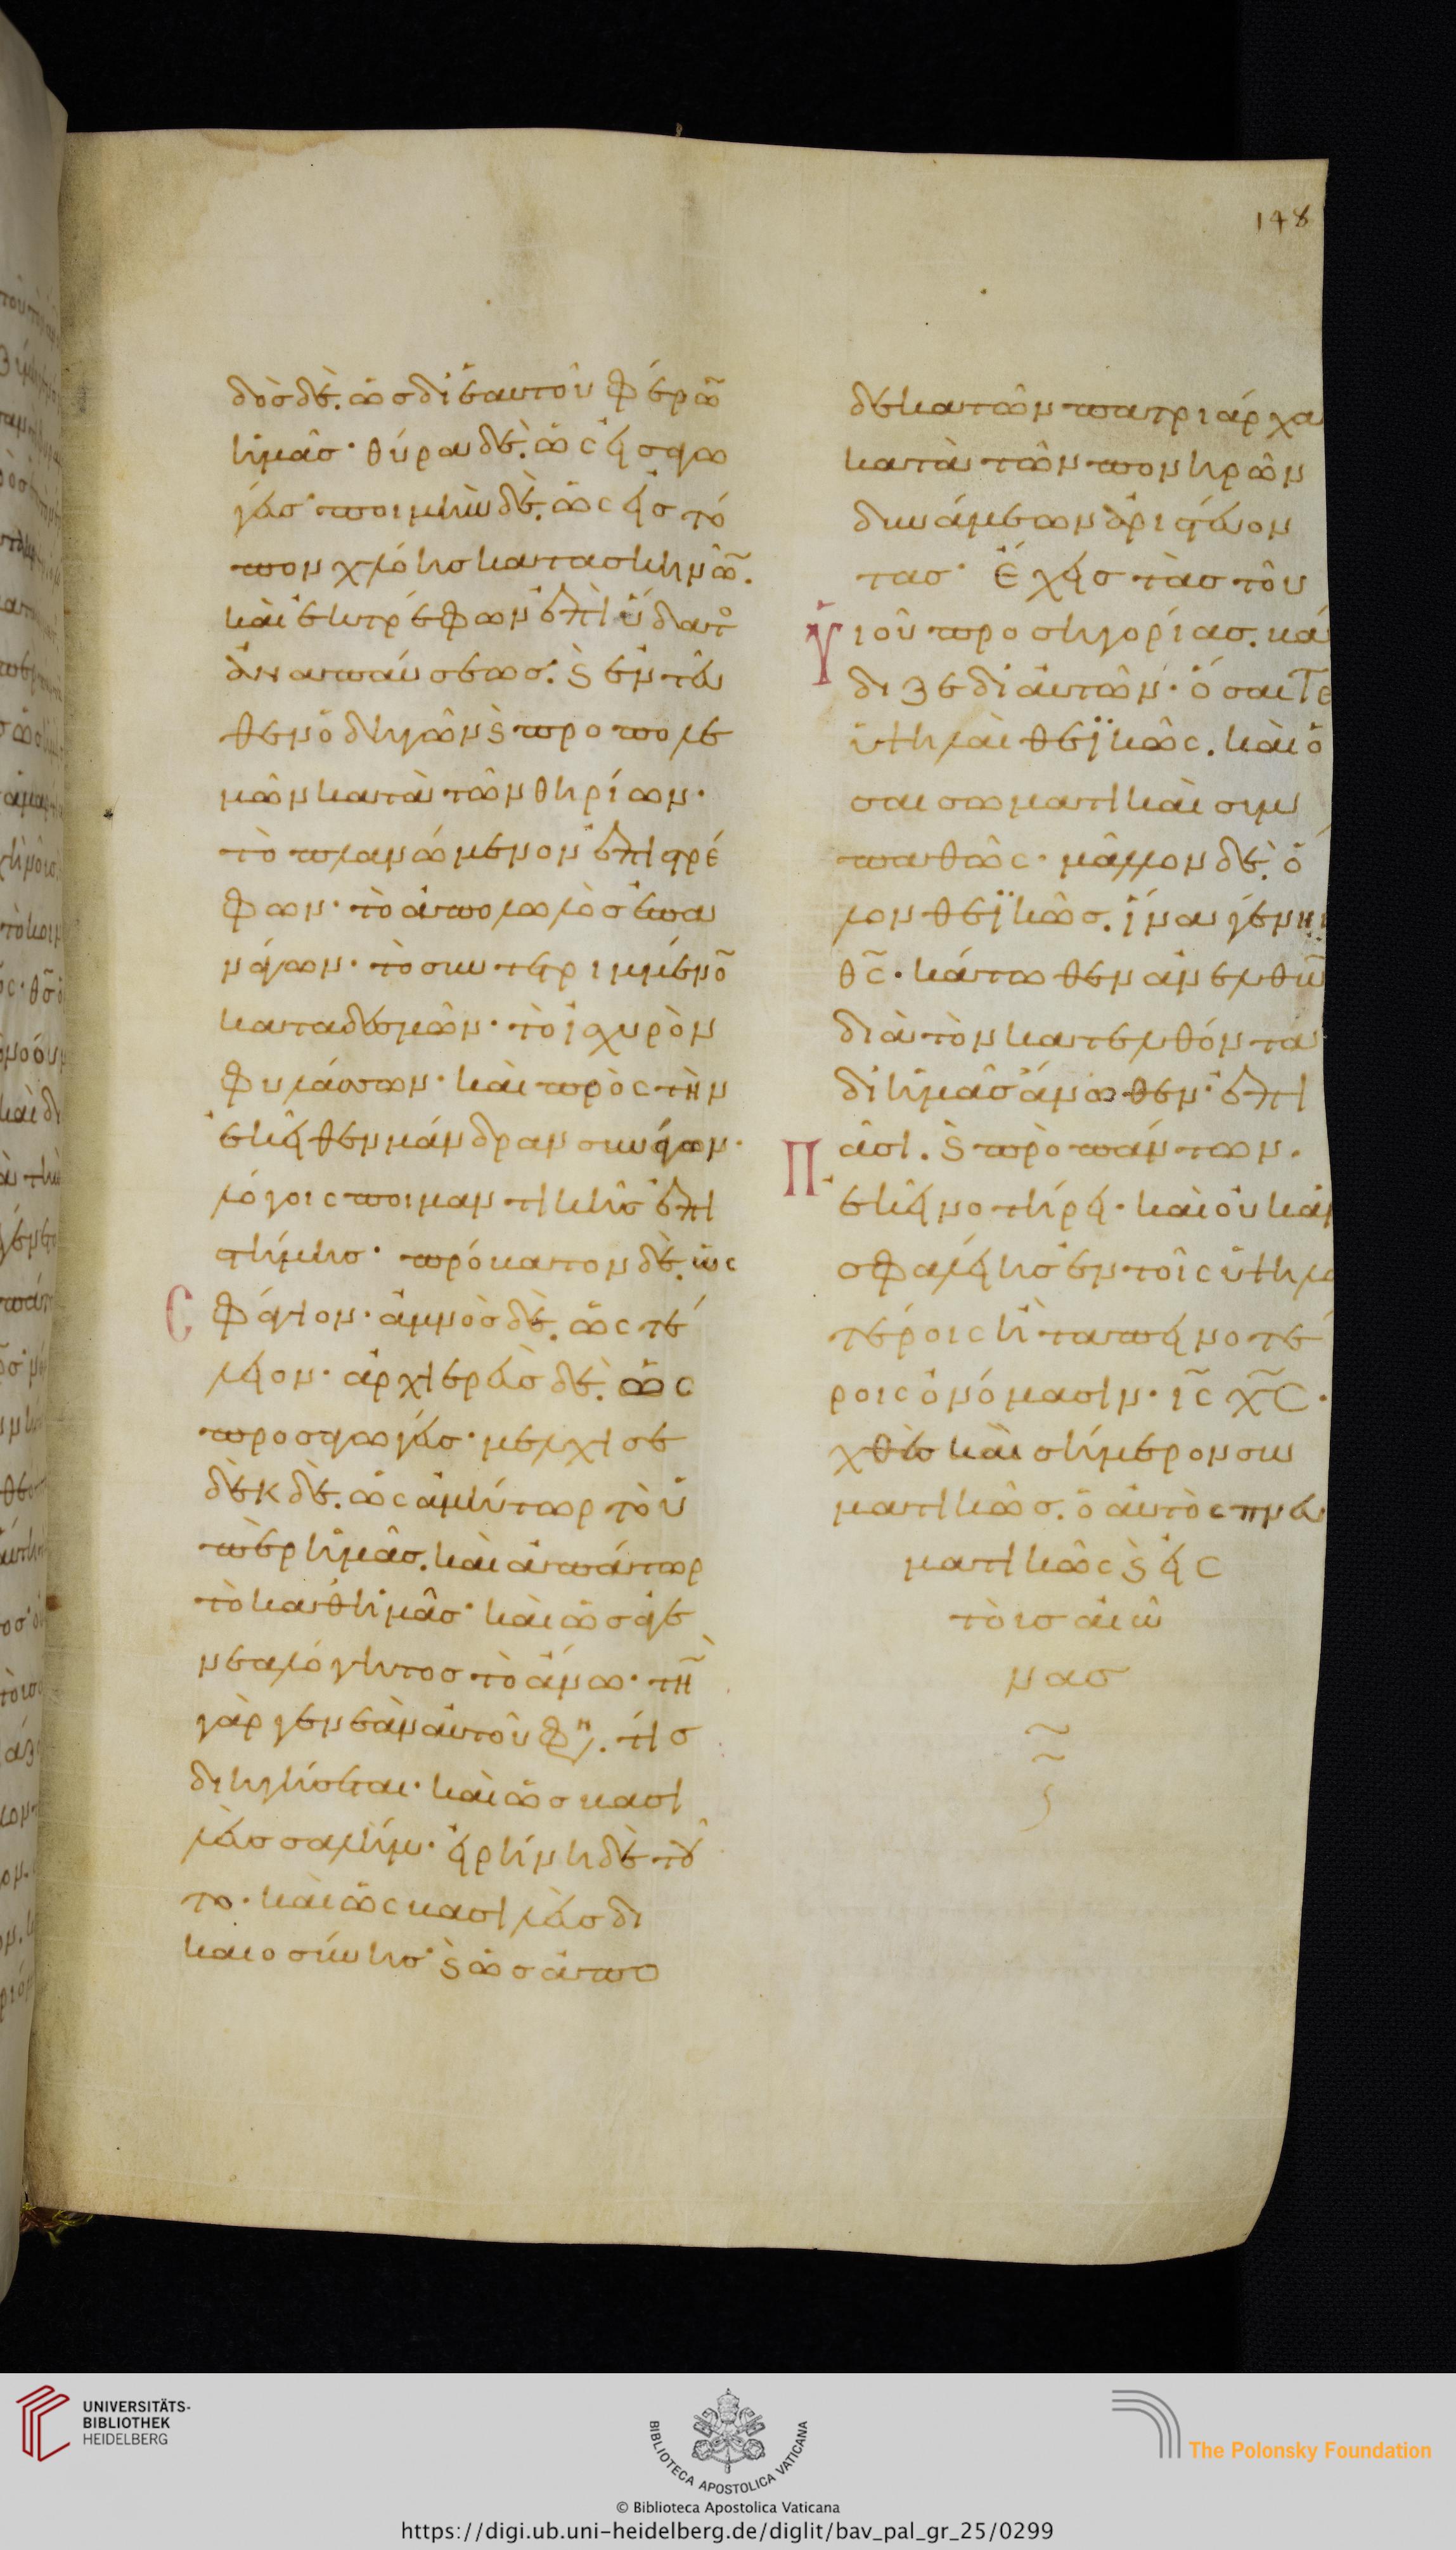 148
δὸσ δὲ. ὡσ δι ἑαυτοῦ φέρω̃
ἡμᾶσ· θύρα δὲ. ὡς εἰσαγω
γεύσ· ποιμὴν δὲ. ὡς εἰσ τό
πον χλόησ κατασκηνω̃.
καὶ ἐκτρέφων ἐπὶ ὕδατο
ἀναπαύσεωσ· ϗ ἐντεῦ
θεν ὁδηγῶν ϗ προπολε
μῶν κατὰ τῶν θηρίων·
τὸ πλανώμενον ἐπιστρέ
φων· τὸ ἀπολωλὸσ ἐπα
νάγων· τὸ συντετριμμένο̃
καταδεσμῶν· τὸ ἰσχυρὸν
φυλάσσων· καὶ πρὸς τὴν
ἐκεῖθεν μάνδραν συνάγων·
λόγοις ποιμαντικῆσ ἐπι
στήμησ· πρόβατον δὲ. ὡς
σφάγιον· ἀμνὸσ δὲ. ὡς τέ
λειον· ἀρχιερεὺσ δὲ. ὡς
προσαγωγεύσ· μελχισε
δὲκ δὲ. ὡς ἀμήτωρ τὸ ὑ
πὲρ ἡμᾶσ. καὶ ἀπάτωρ
τὸ καθ ἡμᾶσ· καὶ ὡσ ἀγε
νεαλόγητοσ τὸ ἄνω· τὴ̃
γὰρ γενεὰν αὐτοῦ φη. τίσ
διηγήσεται· καὶ ὡσ βασι
λεὺσ σαλήμ· εἰρήνη δὲ τοῦ
το· καὶ ὡς βασιλεὺσ δι
καιοσύνησ· ϗ ὡσ ἀπο
δεκατῶν πατριάρχα
κατὰ τῶν πονηρῶν
δυνάμεων ἀριστεύον
τασ· Ἔχεισ τὰσ τοῦ
Υἱοῦ προσηγορίασ. βά
διζε δι αὐτῶν· ὅσαι τε
ὑψηλαὶ θεϊκῶς. καὶ ὅ
σαι σωματικαὶ συμ
παθῶς· μᾶλλον δὲ. ὅ
λον θεϊκῶσ. ἵνα γένηι
θς· κάτωθεν ἀνελθὼ̃
διὰ τὸν κατελθόντα
δι ἡμᾶσ ἄνωθεν· ἐπὶ
Πᾶσι. ϗ πρὸ πάντων.
ἐκεῖνο τήρει· καὶ οὐ κἀν
σφαλείησ ἐν τοῖς ὑψηλο
τέροις ἢ ταπεινοτέ
ροις ὀνόμασιν· ις χς·
χθὲσ καὶ σήμερον σω
ματικῶσ. ὁ αὐτὸς πνευ
ματικῶς ϗ εἰς
τοὺσ αἰῶ
νασ
UNIVERSITÄTS-
BIBLIOTHEK
HEIDELBERG
BIBLIOTECA APOSTOLICA VATICANA
The Polonsky Foundation
© Biblioteca Apostolica Vaticana
https://digi.ub.uni-heidelberg.de/diglit/bav_pal_gr_25/0299